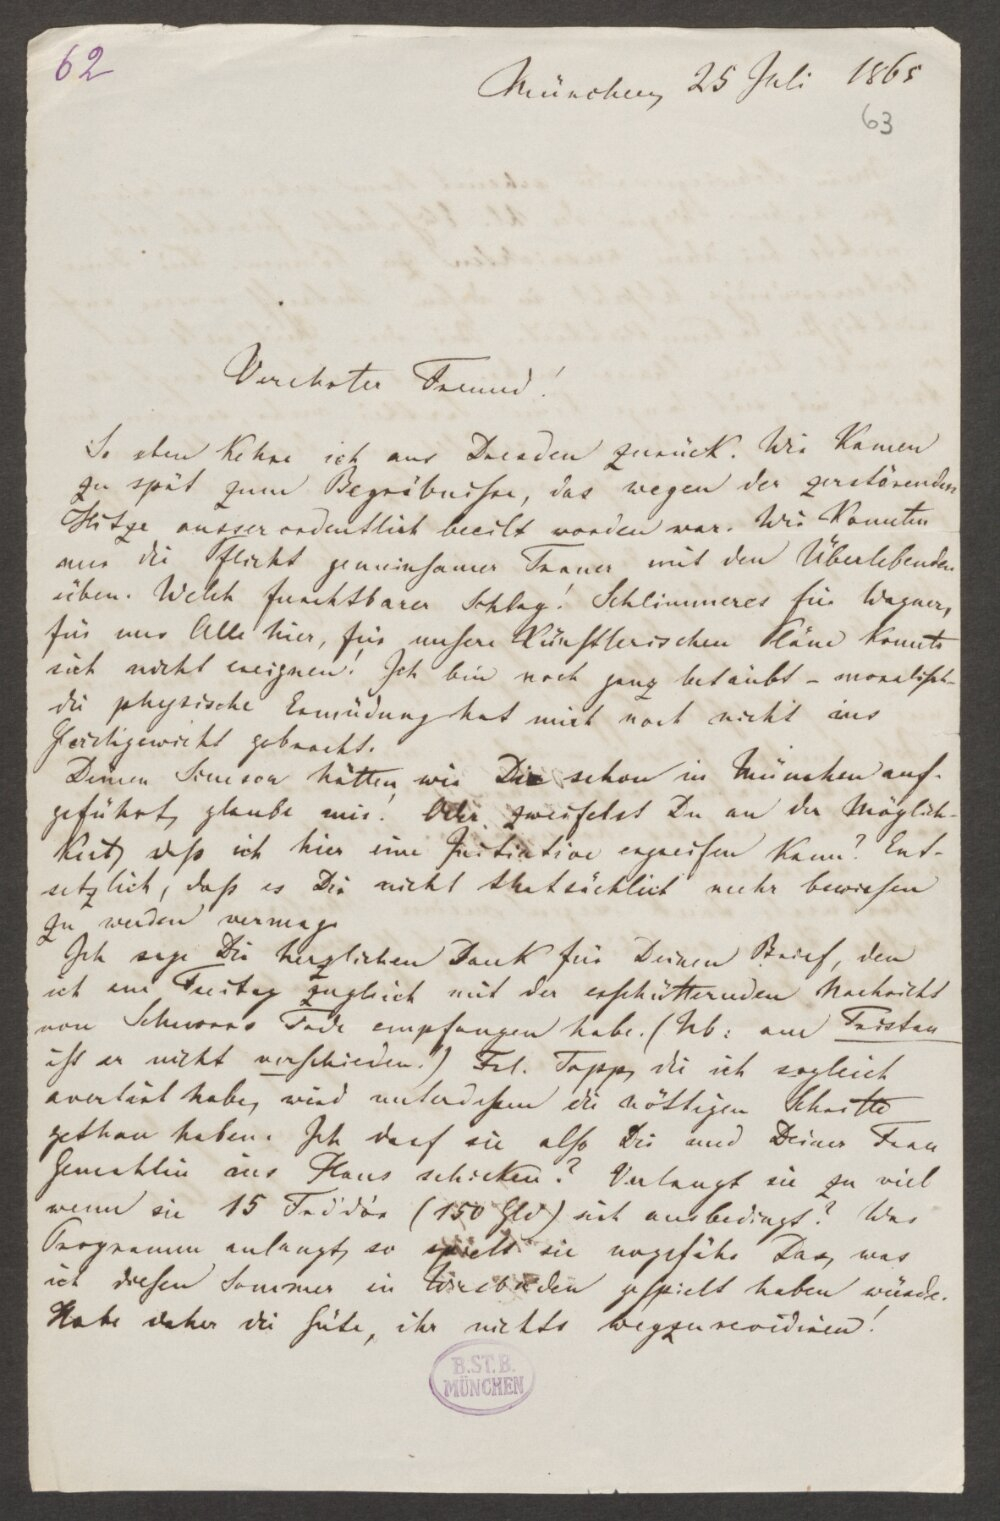 62
München, 25 Juli 1865
63
Verehrter Freund!
So eben kehre ich aus Dresden zurück. Wir kamen
zu spät zum Begräbnisse, das wegen der zerstörenden
Hitze ausserordentlich beeilt worden war. Wir konnten
nur die Pflicht gemeinsamer Trauer mit den Überlebenden
üben. Welch furchtbarer Schlag! Schlimmeres für Wagner,
für uns Alle hier, für unsere künstlerischen Pläne konnte
sich nicht ereignen! Ich bin noch ganz betäubt – moralisch –
die physische Ermüdung hat mich noch nicht ins
Gleichgewicht gebracht.
Deinen Simson hätten wir Dir schon in München auf-
geführt, glaube mir! Oder zweifelst Du an der Möglich-
keit, daß ich hier eine Initiative ergreifen kann? Ent-
setzlich, daß es Dir nicht thatsächlich mehr bewiesen
zu werden vermag.
Ich sage Dir herzlichen Dank für Deinen Brief, den
ich am Freitag zugleich mit der erschütternden Nachricht
von Schnorrs Tode empfangen habe. (Nb: am Tristan
ist er nicht verschieden!) Frl. Topp, die ich sogleich
avertirt habe, wird unterdessen die nöthigen Schritte
gethan haben. Ich darf sie also Dir und Deiner Frau
Gemahlin ins Haus schicken? Verlangt sie zu viel
wenn sie 15 Frd'dór (150 Gld) sich ausbedingt? Was
Programm anlangt, so spielt sie ungefähr Das, was
ich diesen Sommer in Wiesbaden gespielt haben würde.
Habe daher die Güte, ihr nichts wegzurevidiren!
B.ST.B.
MÜNCHEN